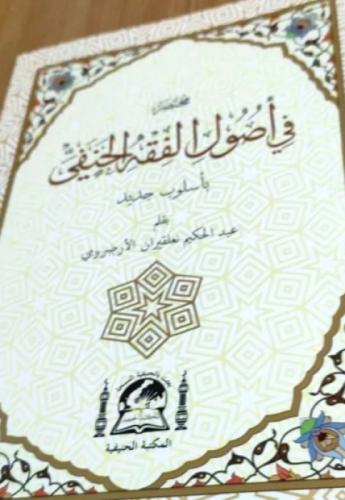 مختصر
في أصول الفقه الحنفي
بأسلوب جديد
بقلم
عبد الحكيم نعلقيران الأرضرومي
المكتبة الحنيفة